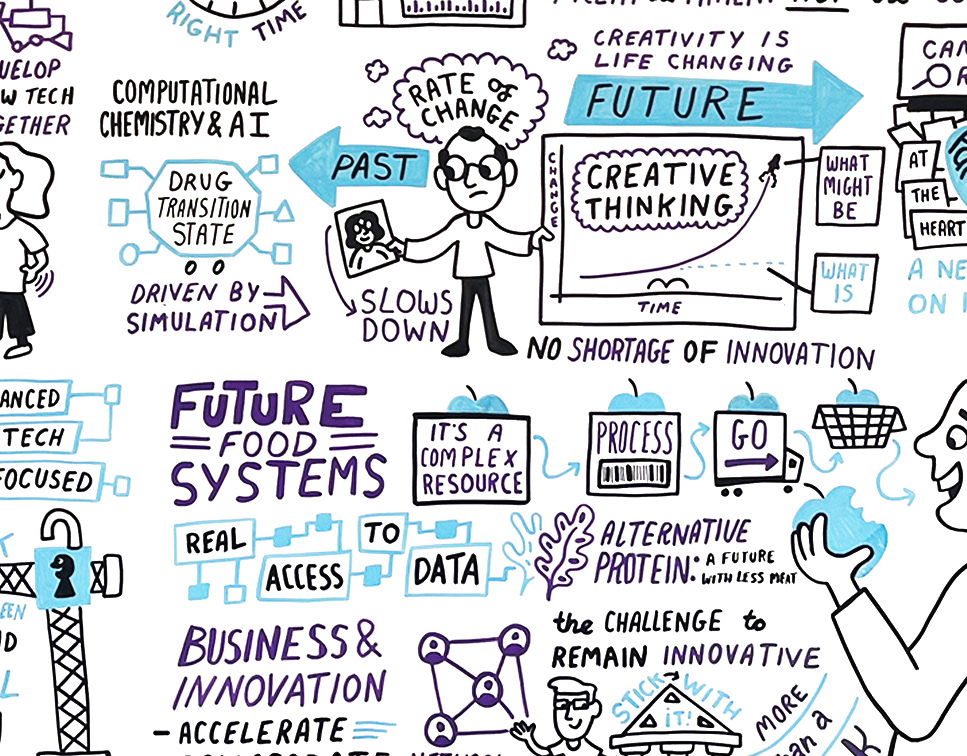 RIGHT TIME
CREATIVITY IS
LIFE CHANGING
W TECH
GETHER
COMPUTATIONAL
CHEMISTRY & AI
RATE of
CHANGE
FUTURE
PAST
CHANGE
CREATIVE
THINKING
WHAT
MIGHT
BE
AT
THE
HEART
DRUG
TRANSITION
STATE
WHAT
IS
A NE
ON
DRIVEN BY
SIMULATION
SLOWS
DOWN
TIME
NO SHORTAGE OF INNOVATION
ANCED
TECH
FOCUSED
FUTURE
FOOD
SYSTEMS
IT'S A
COMPLEX
RESOURCE
PROCESS
GO
REAL
ACCESS
TO
DATA
ALTERNATIVE
PROTEIN:
A FUTURE
WITH LESS MEAT
BUSINESS &
INNOVATION
- ACCELERATE
the CHALLENGE to
REMAIN INNOVATIVE
STICK WITH
iT!
MORE